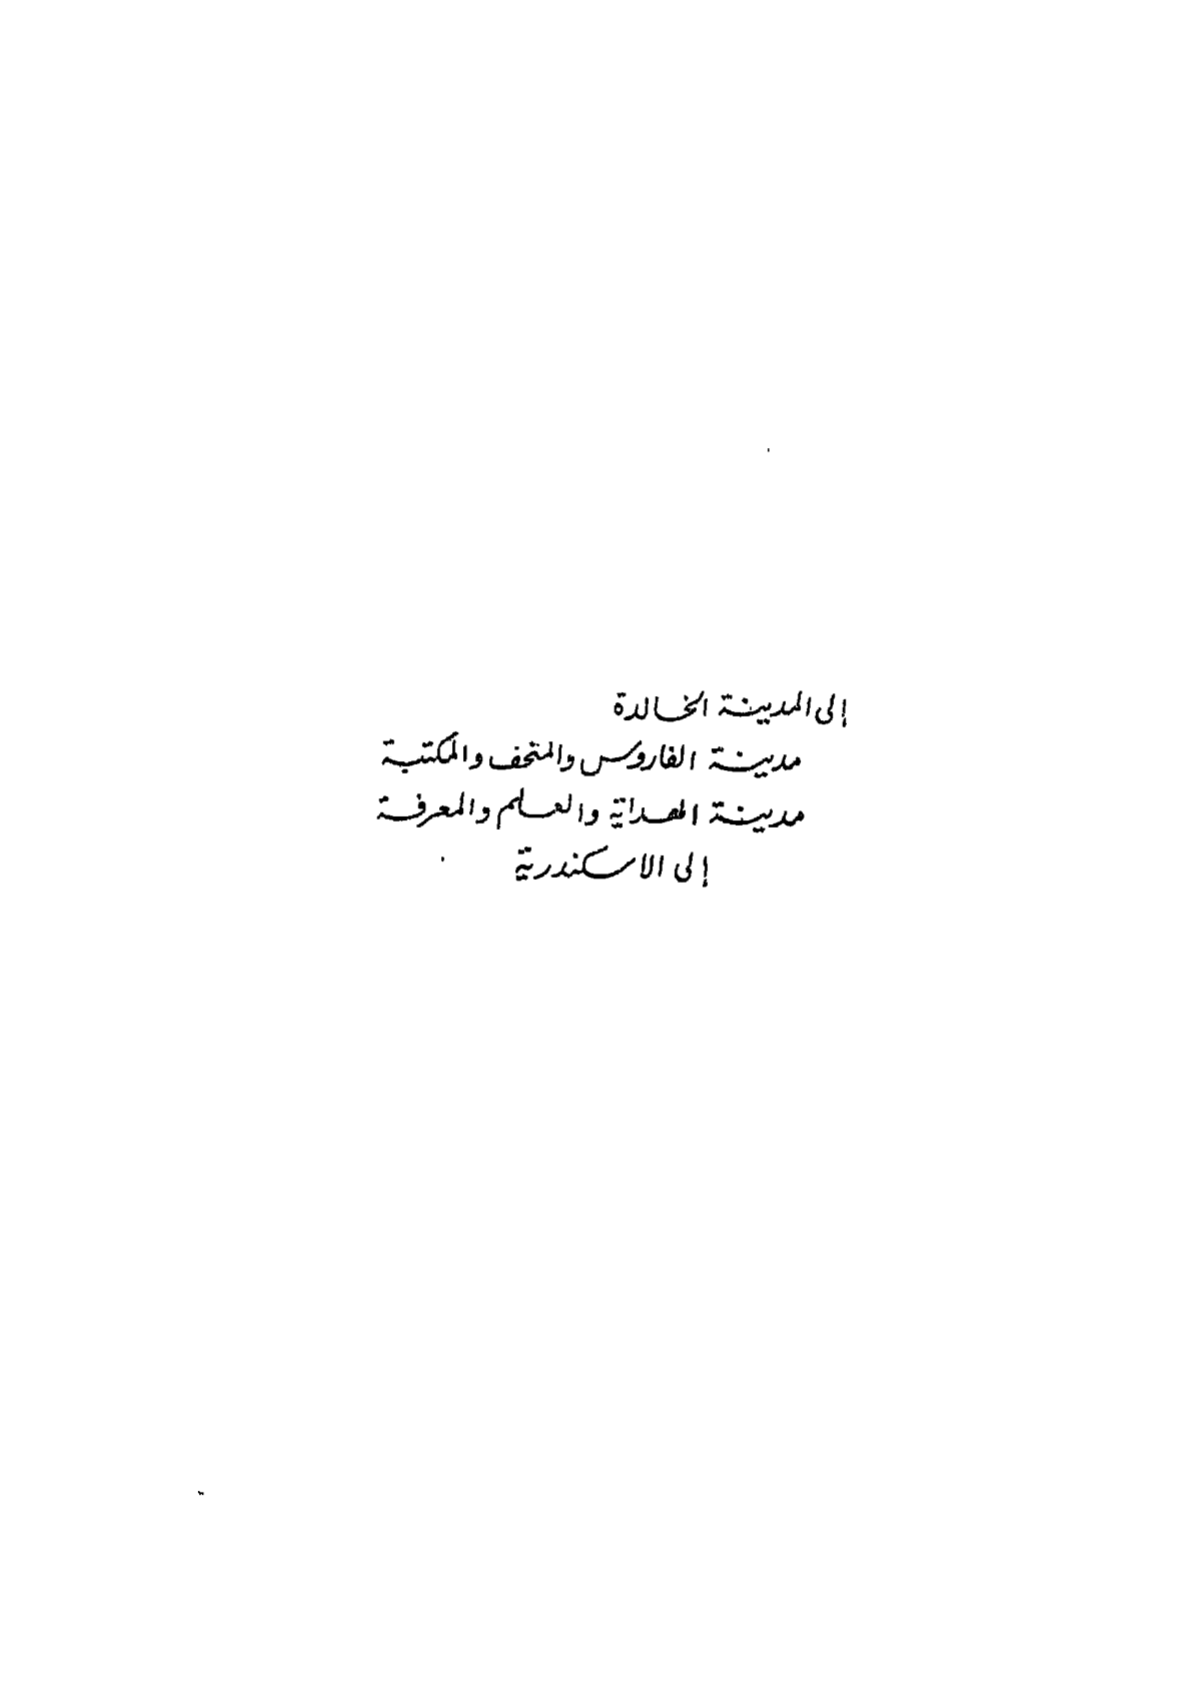 إلى المدينة الخالدة
مدينة الفاروس والمتحف والمكتبة
مدينة الهداية والعلم والمعرفة
إلى الاسكندرية